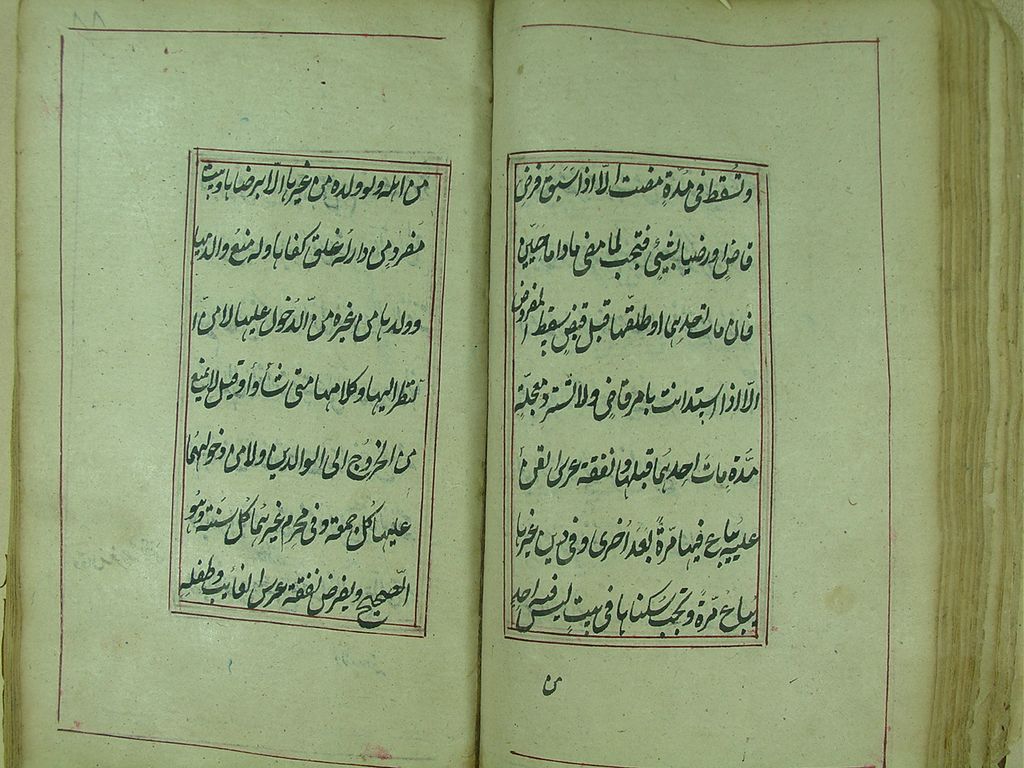 وتسقط فى مدة مضت الا اذا سبق فرض
قاض او رضيا بشيئ فتجب لما مضى ماداما حيين
فان مات احدهما او طلقها قبل قبض يسقط المفروض
الا اذا استدانت بامر قاض ولا تسترد معجلة
مدة مات احدهما قبلها ونفقة عرس القن
عليه يباع فيها مرة بعد اخرى وفى دين غيرها
يباع مرة وتجب سكناها فى بيت ليس فيه احد
من
من اهله ولو ولده من غيرها الا برضاها وبيت
مفرد من دار له غلق كفاها وله منع والديها
وولدها من غيره من الدخول عليها لا من ا
لنظر اليها وكلامها متى شاؤا وقيل لا يمنع
من الخروج الى الوالدين ولا من دخولهما
عليها كل جمعة وفى محرم غيرهما كل سنة وهو
الصحيح ويفرض نفقة عرس الغائب وطفله